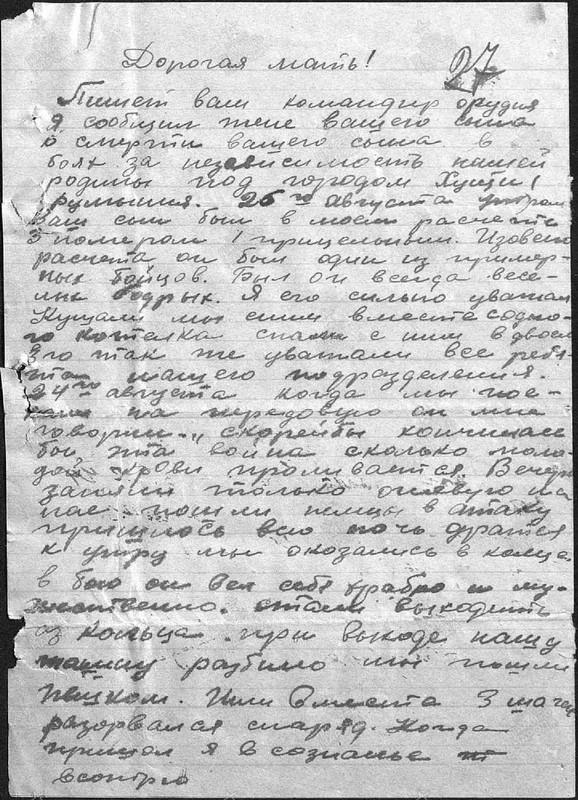 Дорогая мать!
27
Пишет вам командир орудия
я сообщил жене вашего сына
о смерти вашего сына в
боях за независимость нашей
родины под городом Хущи!
румыния. 26го августа утром
Ваш сын был в моем расчете
3 номером I прицельным. Изовсего
расчета он был один из пример-
ных бойцов. Был он всегда весе-
лым бодрых. Я его сильно уважал
Кушали мы сним вместе с одно-
го котелка спали с ним вдвоем
Его так же уважали все ребя-
та нашего подразделения.
24го августа когда мы пое-
на передовую он мне
говорил „ скорейбы кончилась
бы, эта война сколько моло-
дой крови проливается. Вечером
заняли только огневую на
нас пошли немцы в атаку
пришлось всю ночь дратся
к утру мы оказались в кольце
в бою он вел себя храбро и му-
жественно. стали выходить
из кольца. при выходе нашу
машину разбило мы пошли
пешком. Шли Вместе 3 шагах
разорвался снаряд. Когда
пришол я в сознанье